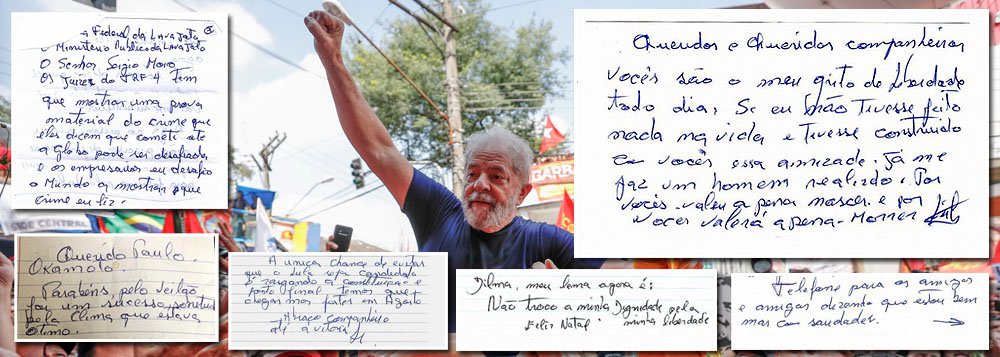 Federal da Lava Jato
O Ministerio Publico da Lava Jato
O Senhor Sergio Moro
Os Juizes do TRF 4 Tem
que mostrar uma prova
material do crime que
eles dizem que cometi até
a Globo pode ser desafiada
e os empresarios eu desafio
o Mundo a mostrar que
crime eu fiz.
Querido Paulo
Okamoto.
Parabens, pelo leilão
foi um sucesso,
pelo clima que estava
otimo.
A unica chance de evitar
que o Lula seja candidato
é rasgando a constituição e
ponto final Temos que
chegar mais fortes em Agosto
Abraço Companheiro
até a vitoria
Dilma, meu lema agora é:
Não troco a minha Dignidade pela
Feliz Natal minha liberdade
Queridos e Queridas companheiras
Vocês são o meu grito de liberdade
todo dia, Se eu não Tivesse feito
nada na vida, e Tivesse construido
com vocês essa amizade. Já me
faz um homem realizado. Por
vocês valeu a pena nascer e por
Voces valerá a pena. Morrer
Telefone para os amigos
e amigas dizendo que estou bem
mas com saudades.
SIDE CENTRAL
GARRA